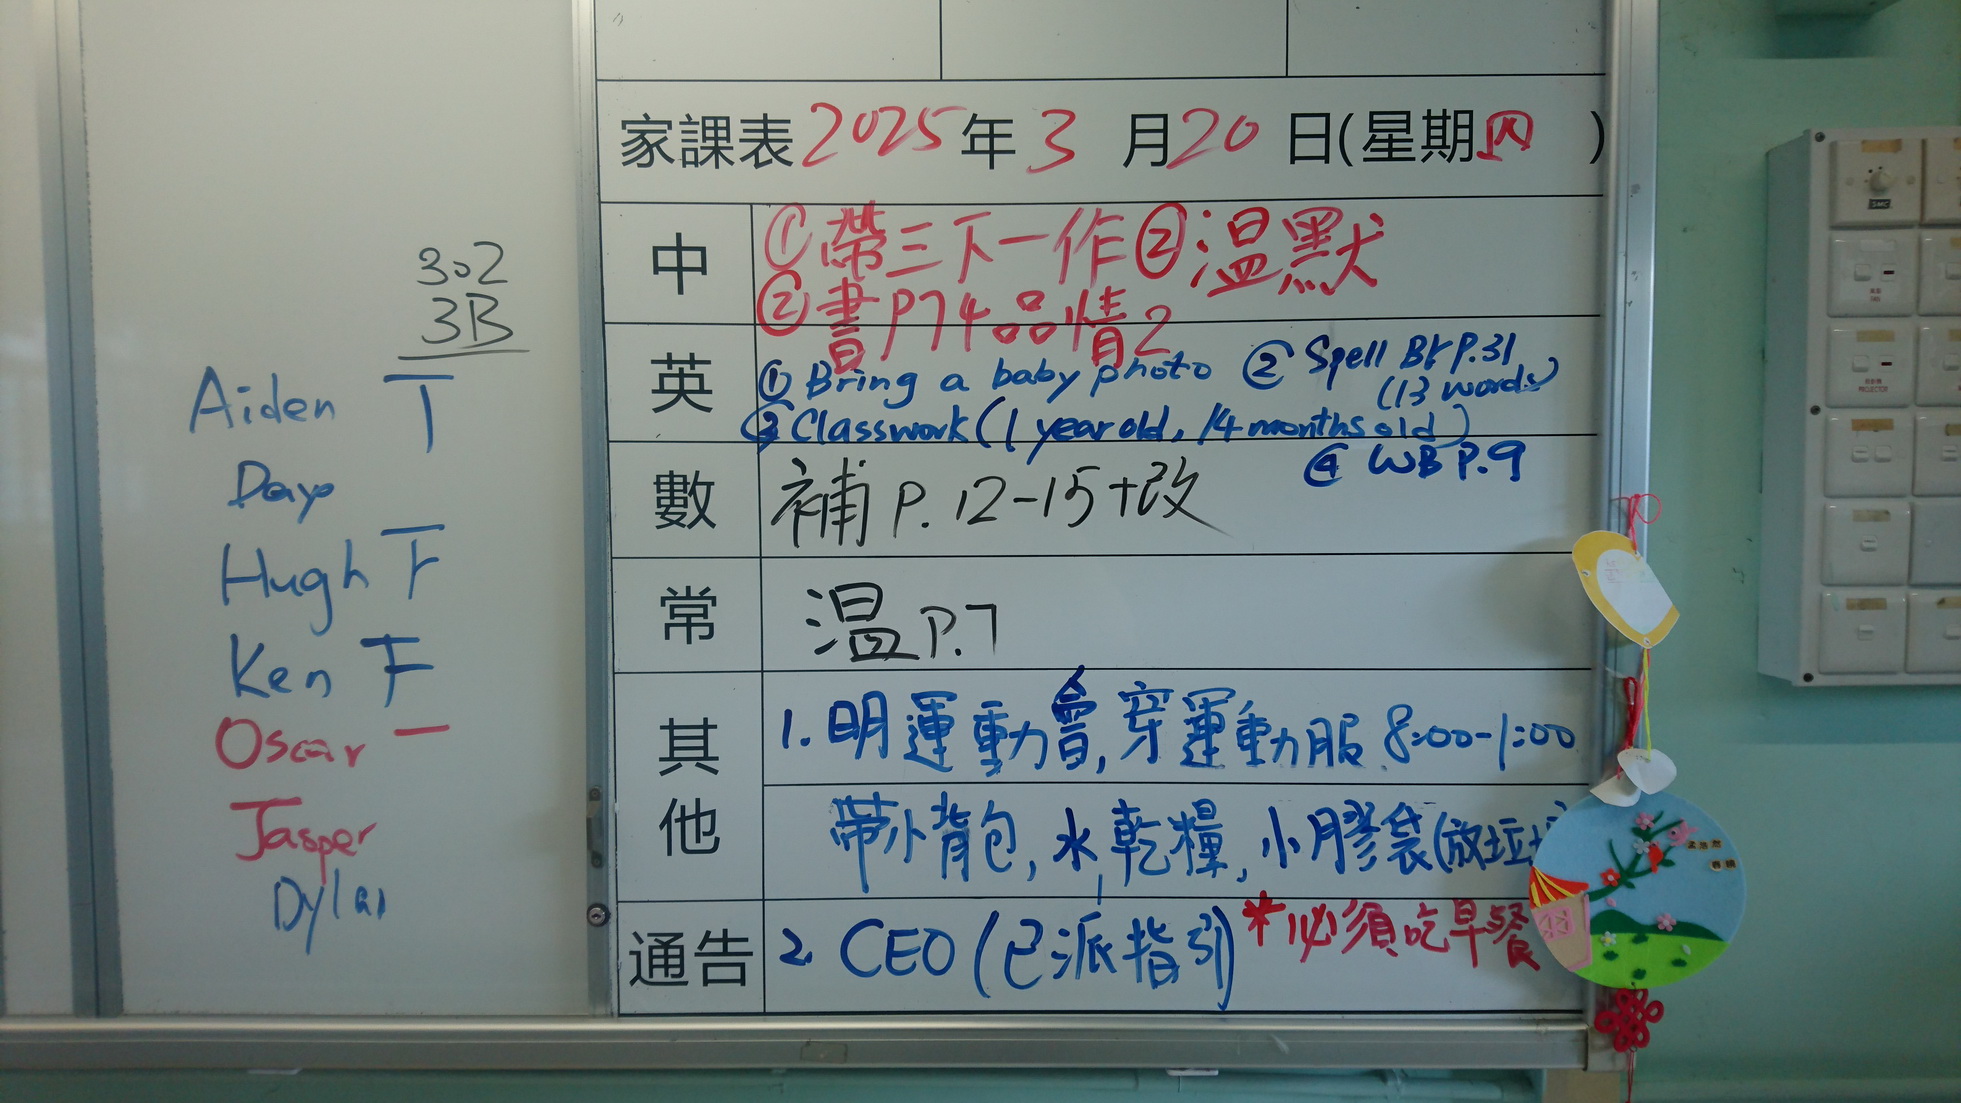 302
3B
Aiden
Dayo
Hugh
Ken
Oscar
Jasper
Dylan
家課表2025年3月20日(星期四)
中 ①帶三下一作②溫默
②書P74品情2
英 ①Bring a baby photo ②Spell Bk P.31
(13 words)
③Classwork(1 year old, 14 months old)
④ WB P.9
數 補 P.12-15+改
常 溫 P.7
其他 1.明運動會,穿運動服 8:00-1:00
帶小背包,水,乾糧,小膠袋(放垃圾
通告 2. CEO (已派指引) *必須吃早餐